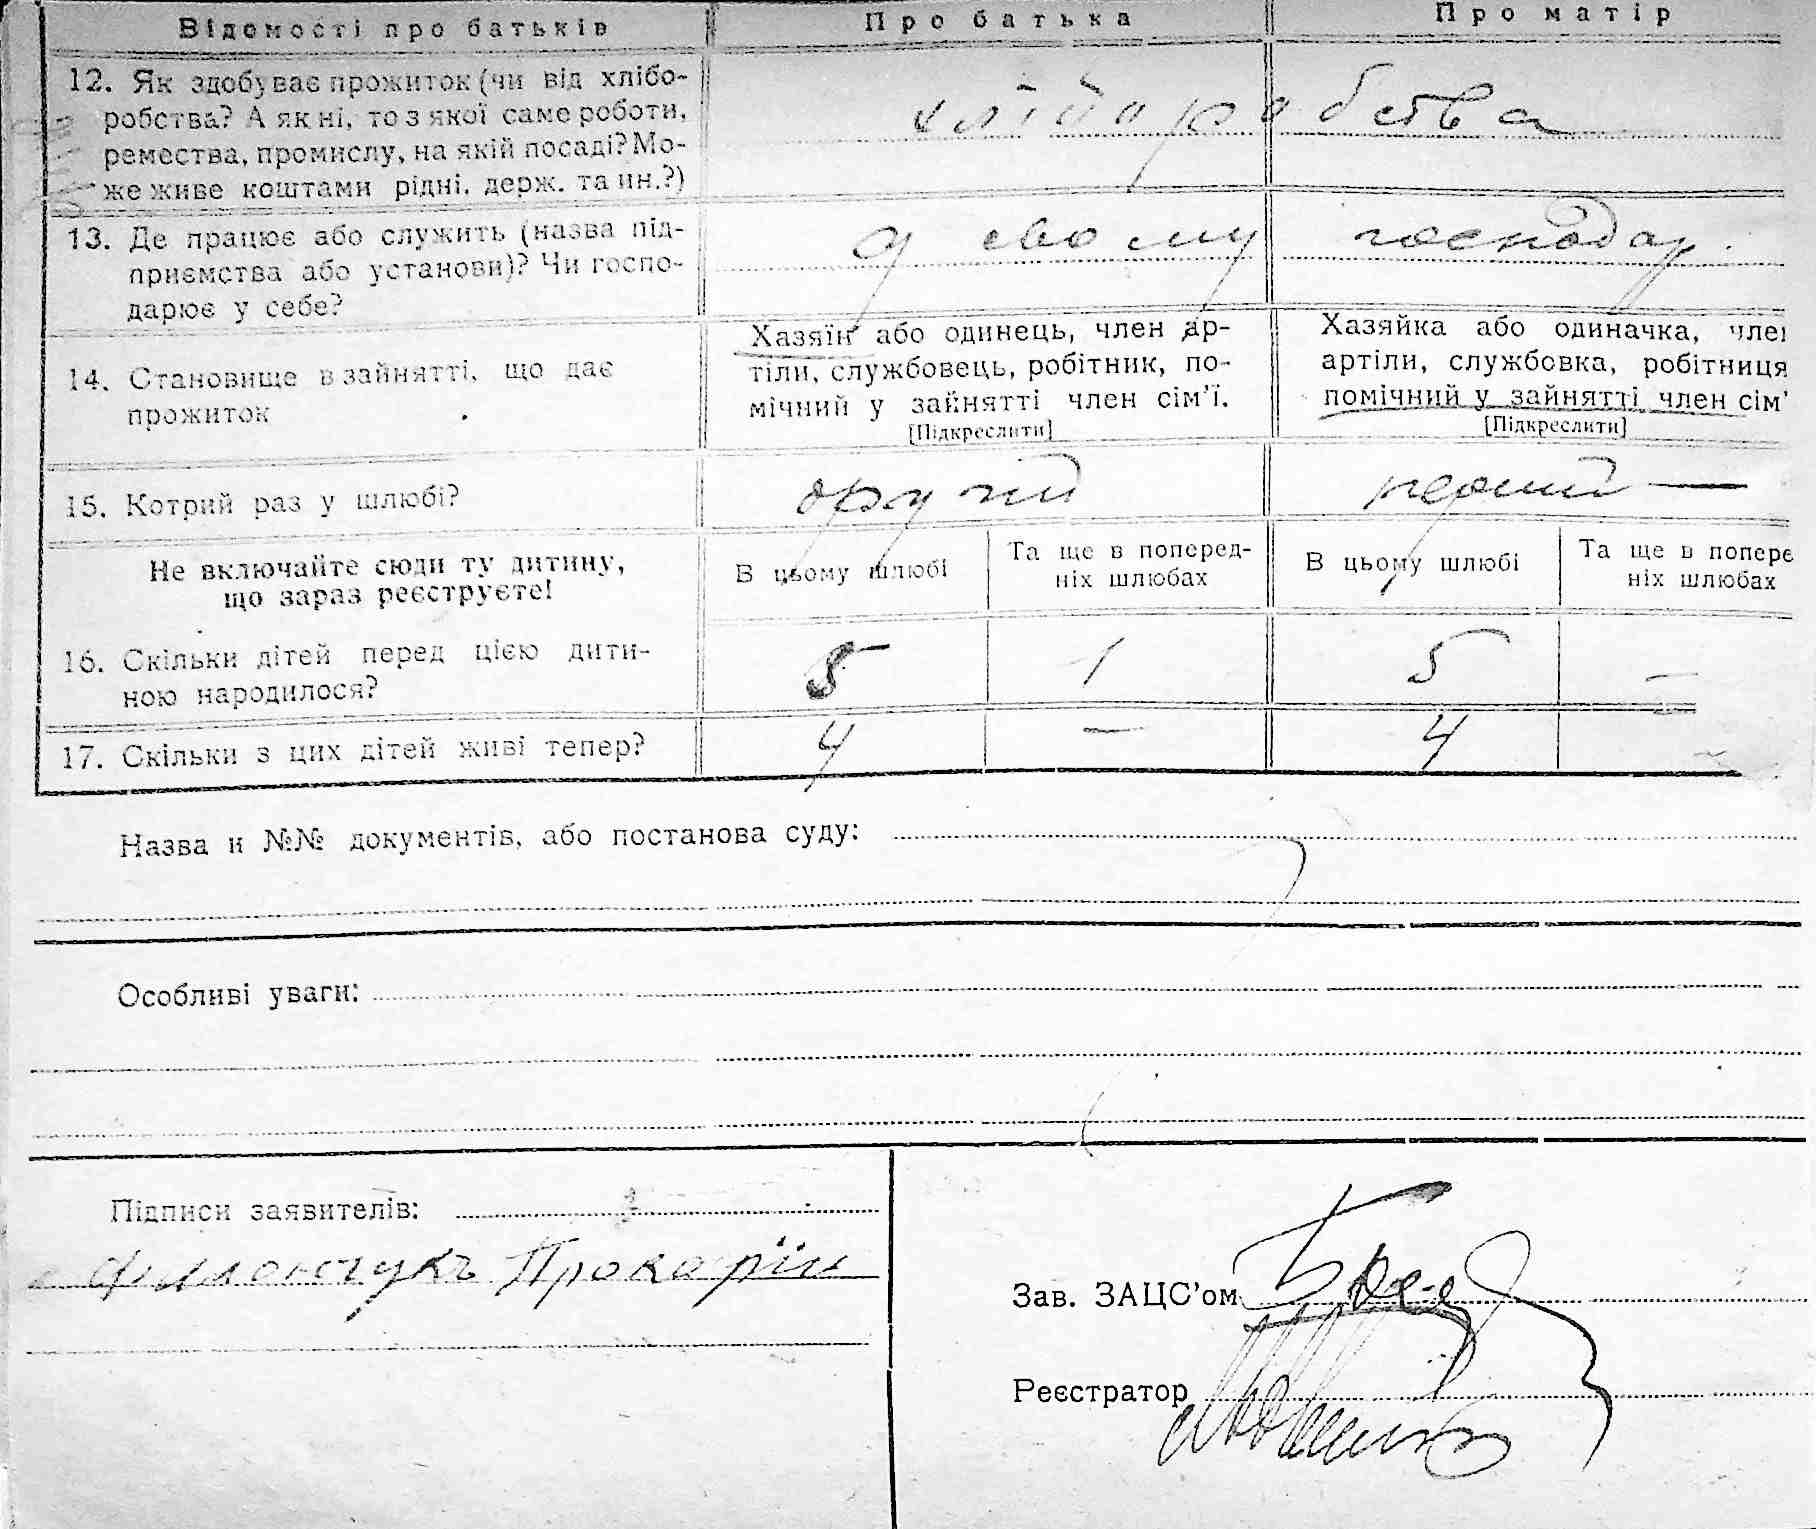 Відомості про батьків Про батька Про матір
12. Як здобуває прожиток (чи від хлібо-
робства? А як ні, то з якої саме роботи,
ремества, промислу, на якій посаді? Мо-
же живе коштами рідні. держ. та ин.?)
хліборобства
13. Де працює або служить (назва під-
приємства або установи)? Чи госпо-
дарює у себе?
у свому господар.
14. Становище в зайнятті, що дає
прожиток
Хазяїн або одинець, член ар-
тіли, службовець, робітник, по-
мічний у зайнятті член сім'ї.
[Підкреслити]
Хазяйка або одиначка, член
артіли, службовка, робітниця
помічний у зайнятті член сім'
[Підкреслити]
15. Котрий раз у шлюбі? другий перший —
Не включайте сюди ту дитину,
що зараз реєструєте!
В цьому шлюбі
Та ще в поперед-
ніх шлюбах
В цьому шлюбі
Та ще в попере
ніх шлюбах
16. Скільки дітей перед цією дити-
ною народилося?
5 1 5 —
17. Скільки з цих дітей живі тепер? 4 — 4
Назва и №№ документів, або постанова суду:
Особливі уваги:
Підписи заявителів:
Филончукъ Прокофій
Зав. ЗАЦС'ом
Реєстратор